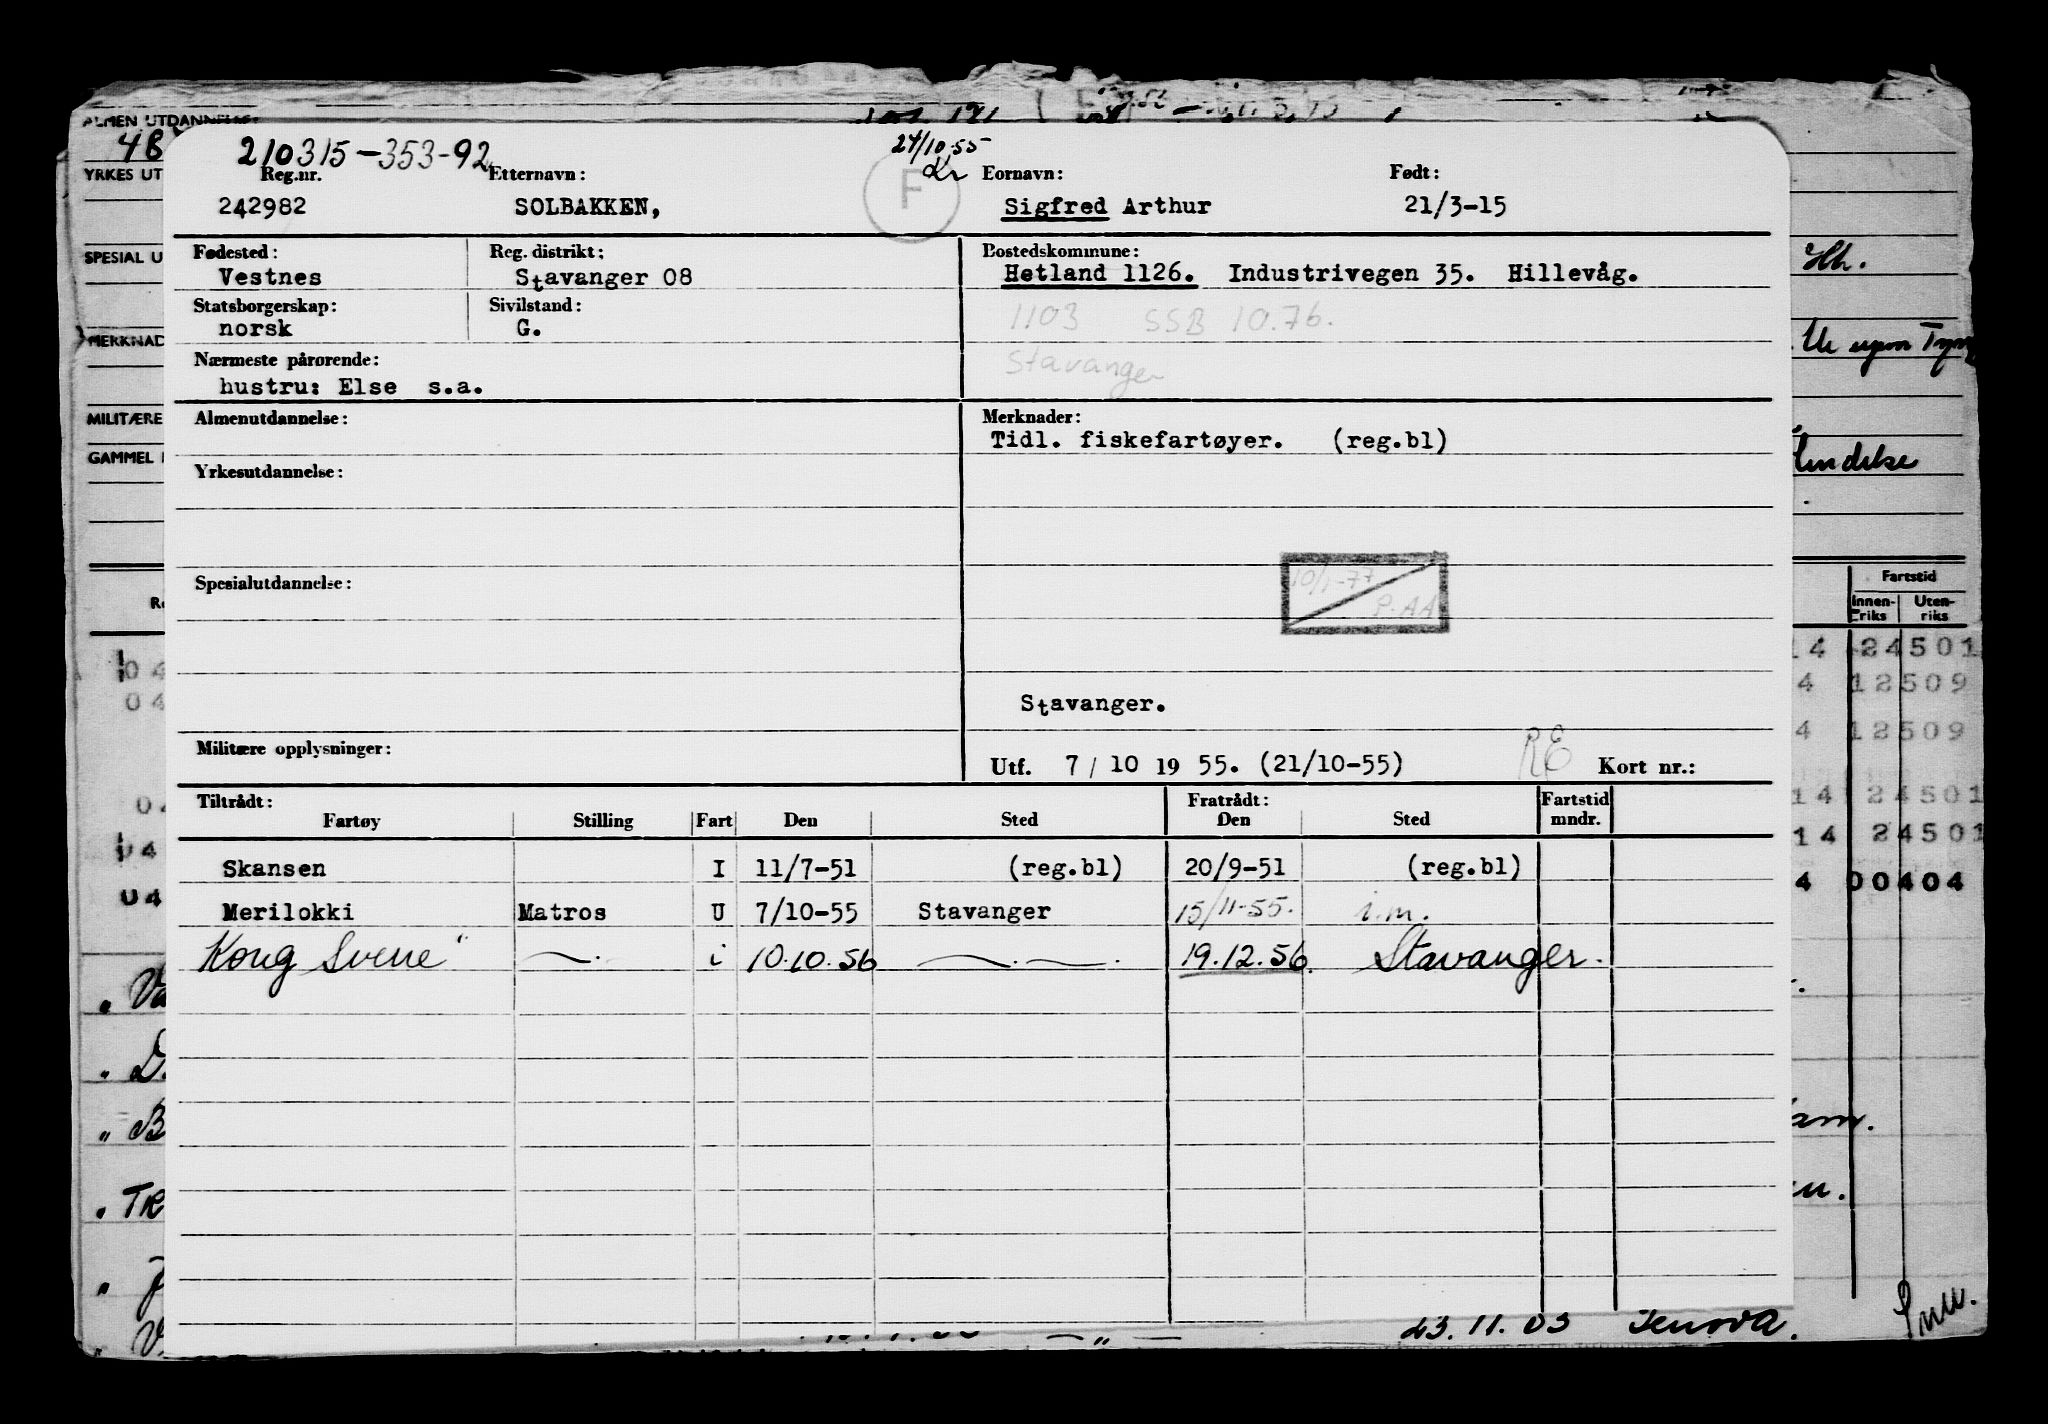 ALMEN UTDANNELSE:
4B
YRKES UT
SPESIAL U
MERKNAD
MILITÆRE
GAMMEL
210315-353-92
24/10-55
Kr
F
Reg.nr. Etternavn: Fornavn: Født:
242982 SOLBAKKEN, Sigfred Arthur 21/3-15
Fødested: Reg. distrikt: Bostedskommune:
Vestnes Stavanger 08 Hetland 1126. Industrivegen 35. Hillevåg.
Statsborgerskap: Sivilstand:
norsk G.
1103 SSB 10.76.
Nærmeste pårørende:
Stavanger
hustru: Else s.a.
Almenutdannelse: Merknader:
Tidl. fiskefartøyer. (reg.bl)
Yrkesutdannelse:
Spesialutdannelse:
10/1-77
P.AA
Stavanger.
Militære opplysninger:
Utf. 7 / 10 19 55. (21/10-55) RE Kort nr.:
Tiltrådt: Fratrådt: Fartstid
Fartøy Stilling Fart Den Sted Den Sted mndr.
Skansen I 11/7-51 (reg.bl) 20/9-51 (reg.bl)
Merilokki Matros U 7/10-55 Stavanger 15/11-55. i.m.
Kong Svene" —.— i 10.10.56 —.—.— 19.12.56. Stavanger.
Fartstid
Innen-
riks
Uten-
riks
14 24501
4 12509
4 12509
14 24501
14 24501
4 00404
04
04
04
04
04
23.11.03 Jenova.